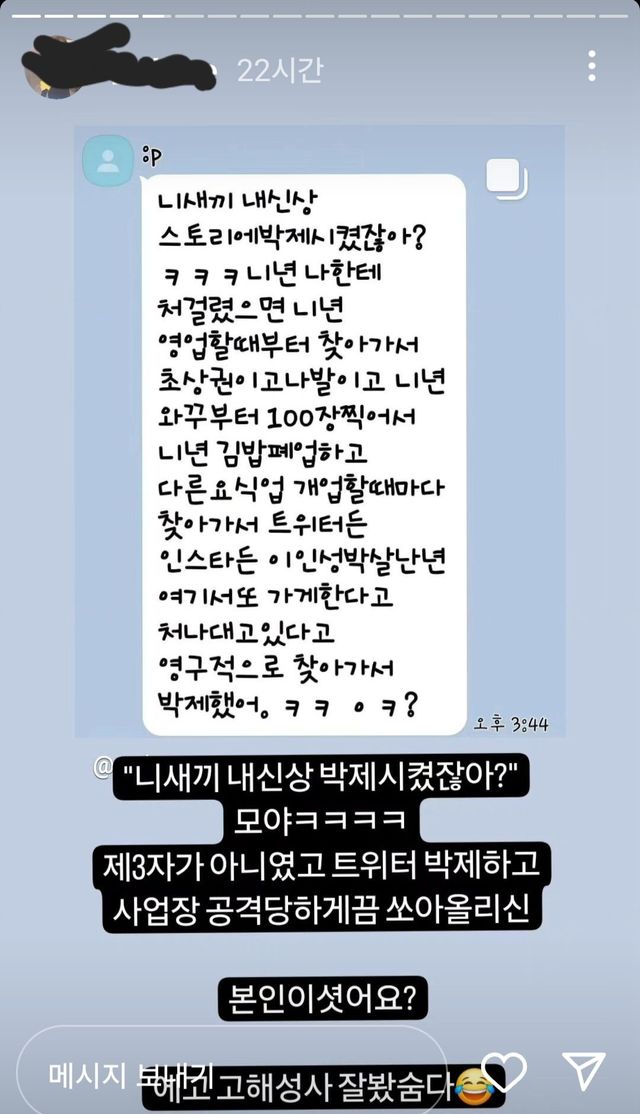 22시간
:P
니새끼 내신상
스토리에박제시켰잖아?
ㅋ ㅋ ㅋ 니년 나한테
처걸렸으면 니년
영업할때부터 찾아가서
초상권이고나발이고 니년
와꾸부터 100장찍어서
니년 김밥폐업하고
다른요식업 개업할때마다
찾아가서 트위터든
인스타든 이인성박살난년
여기서또 가게한다고
처나대고있다고
영구적으로 찾아가서
박제했어. ㅋ ㅋ ㅇ ㅋ?
오후 3:44
@
"니새끼 내신상 박제시켰잖아?"
모야ㅋㅋㅋㅋ
제3자가 아니였고 트위터 박제하고
사업장 공격당하게끔 쏘아올리신
본인이셧어요?
에고 고해성사 잘봤숨다😂
메시지 보내기